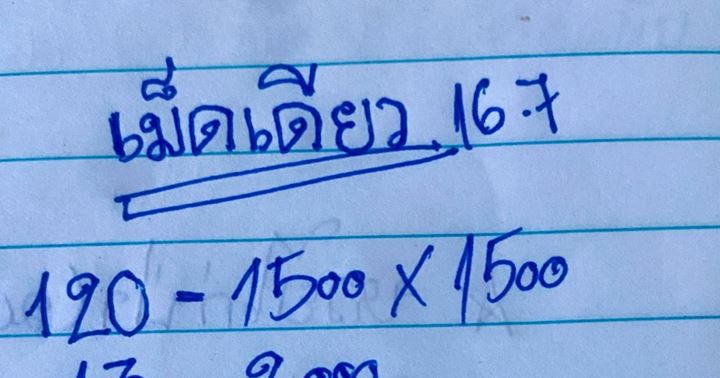 เม็ดเดียว 16.7
120 - 1500 x 1500